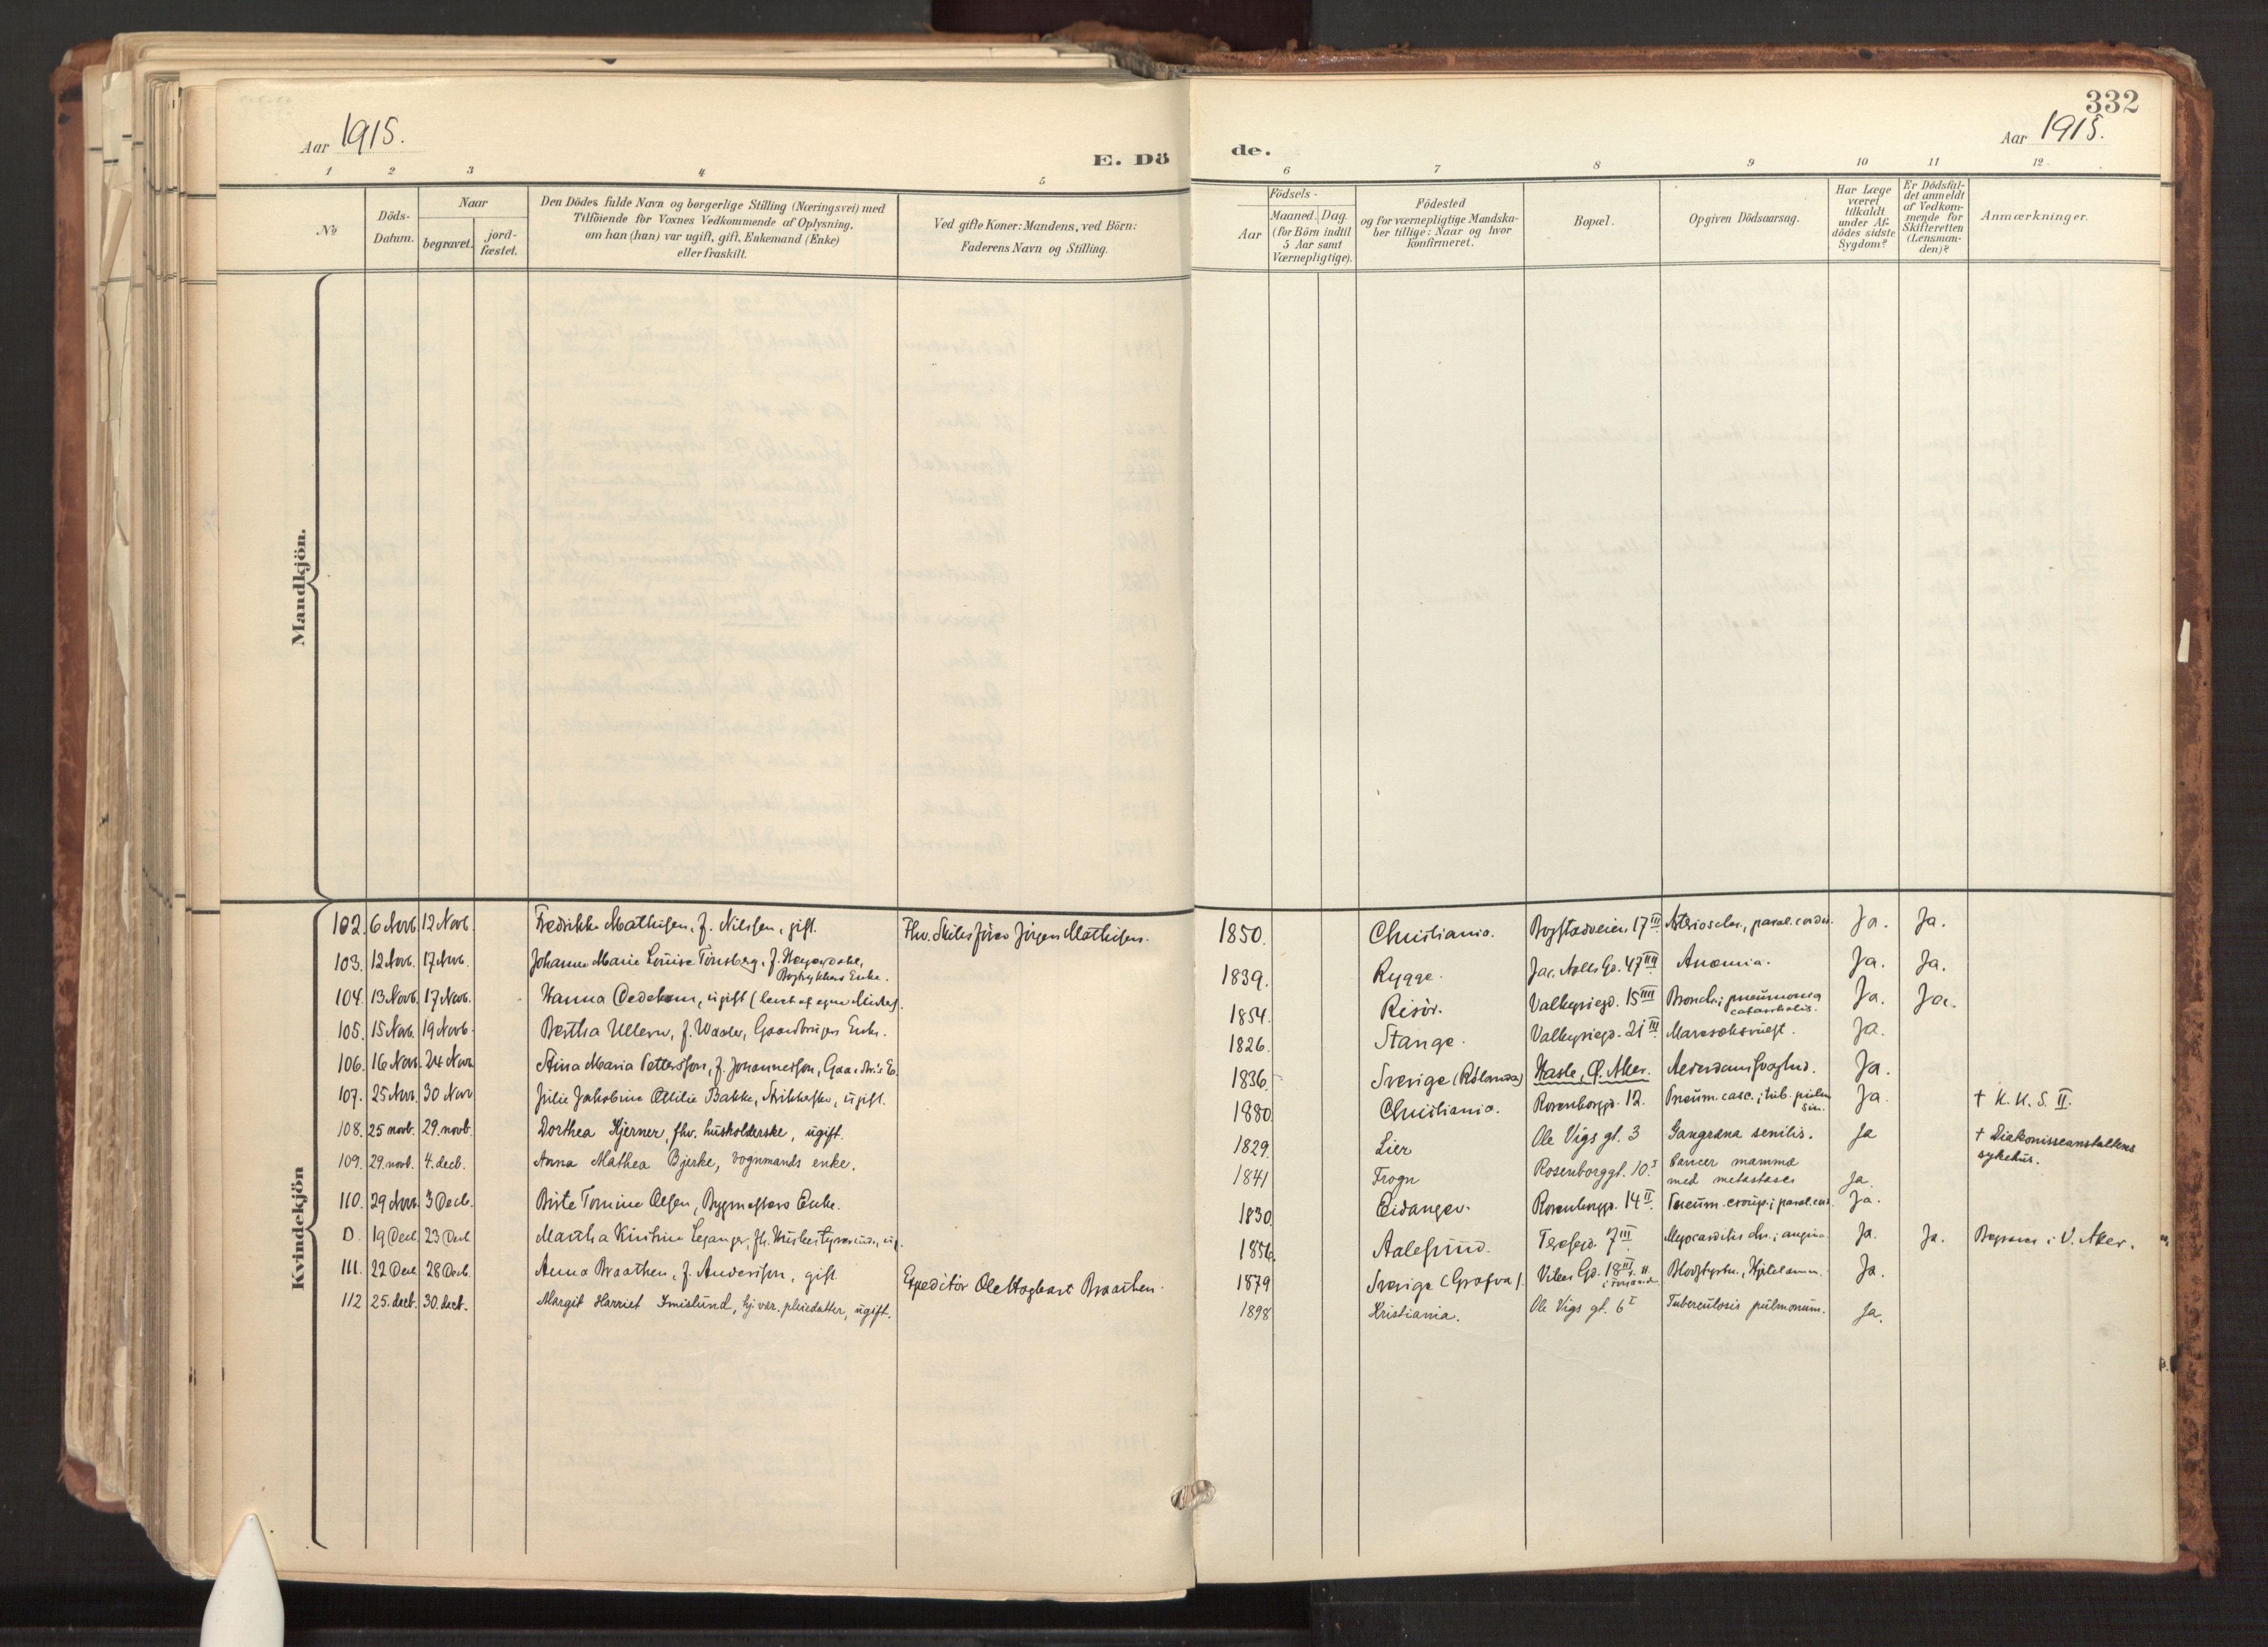 332
Aar 1915.
E. Dö
de.
Aar 1915.
1 2 3 4 5 6 7 8 9 10 11 12
No
Döds-
Datum.
Naar
begravet.
jord-
fæstet.
Den Dödes fulde Navn og borgerlige Stilling (Næringsvei) med
Tilföiende for Voxnes Vedkommende af Oplysning,
om han (hun) var ugift, gift, Enkemand (Enke)
eller fraskilt.
Ved gifte Koner: Mandens, ved Börn:
Faderens Navn og Stilling.
Födsels-
Aar
Maaned. Dag.
(for Börn indtil
5 Aar samt
Værnepligtige).
Födested
og for værnepligtige Mandska-
ber tillige: Naar og hvor
konfirmeret.
Bopæl.
Opgiven Dödsaarsag.
Har Læge
været
tilkaldt
under Af-
dödes sidste
Sygdom?
Er Dödsfal-
det anmeldt
af Vedkom-
mende for
Skifteretten
(Lensman-
den)?
Anmærkninger.
Mandkjön.
Kvindekjön
102. 6 Novb. 12 Novb. Fredrikke Mathisen, f. Nilssen, gift. Fhv. Jörgen Mathisen. 1850. Christiania. Bogstadveien 17 III Arterioscler., paral. cordis. Ja. Ja.
103. 12 Novb. 17 Novb. Johanne Marie Louise Tönsberg, f.
Bogtrykkers Enke. 1839. Rygge. Jac. Aalls Gd. 47 IIII Anæmia. Ja. Ja.
104. 13 Novb. 17 Novb. Hanna Oedekam, ugift (levet af egne Midler). 1854. Risör. Valkyriegd. 15 IIII Bronch.; pneumonia
catarrhalis. Ja. Ja.
105. 15 Novb. 19 Novb. Bertha Ullern, f. Waaler, Gaardbrugers Enke. 1826. Stange. Valkyriegd. 21 III Ja.
106. 16 Novb. 24 Novb. Stina Maria Pettersson, f. Johannesson, Gaardbr.s E. 1836. Sverige (Rölanda) Hasle, Ø. Aker. Ja.
107. 25 Novb. 30 Novb. Julie Jakobine Ottilie Bakke, Strikkerske, ugift. 1880. Christiania. Rosenborggd. 12. Pneum. casc.; tub. pulm.
sin. Ja. † K. K. S. II.
108. 25 novb. 29. novb. Dorthea Hjerner, fhv. husholderske, ugift. 1829. Lier Ole Vigs gt. 3 Gangræna senilis. Ja † Diakonisseanstaltens
sykehus.
109. 29. novb. 4. decb. Anna Mathea Bjerke, vognmands enke. 1841 Frogn Rosenborggt. 10. I Cancer mammæ
med metastaser Ja.
110. 29 Novb. 3 Decb. Birte Tomine Olsen, Bygmesters Enke. 1830. Eidanger. Rosenborggd. 14 II Pneum. croup.; paral. cord. Ja.
D. 19 Decb. 23 Decb. Martha Kristine Leganger, fh. Husbestyrerinde, ug. 1856. Aalesund. 7 III Myocarditis chr.; angina. Ja. Ja. Begraves i V. Aker.
111. 22 Decb. 28 Decb. Anna Braathen, f. Andersson, gift. Expeditör Ole Hagbart Braathen. 1879 Sverige (Grafva). Vibes Gd. 18 III Ja.
112 25. decb. 30. decb. Margit Harriet Imislund, hj.vær. pleiedatter, ugift. 1898 Kristiania. Ole Vigs gt. 6 I Tuberculosis pulmonum. Ja.